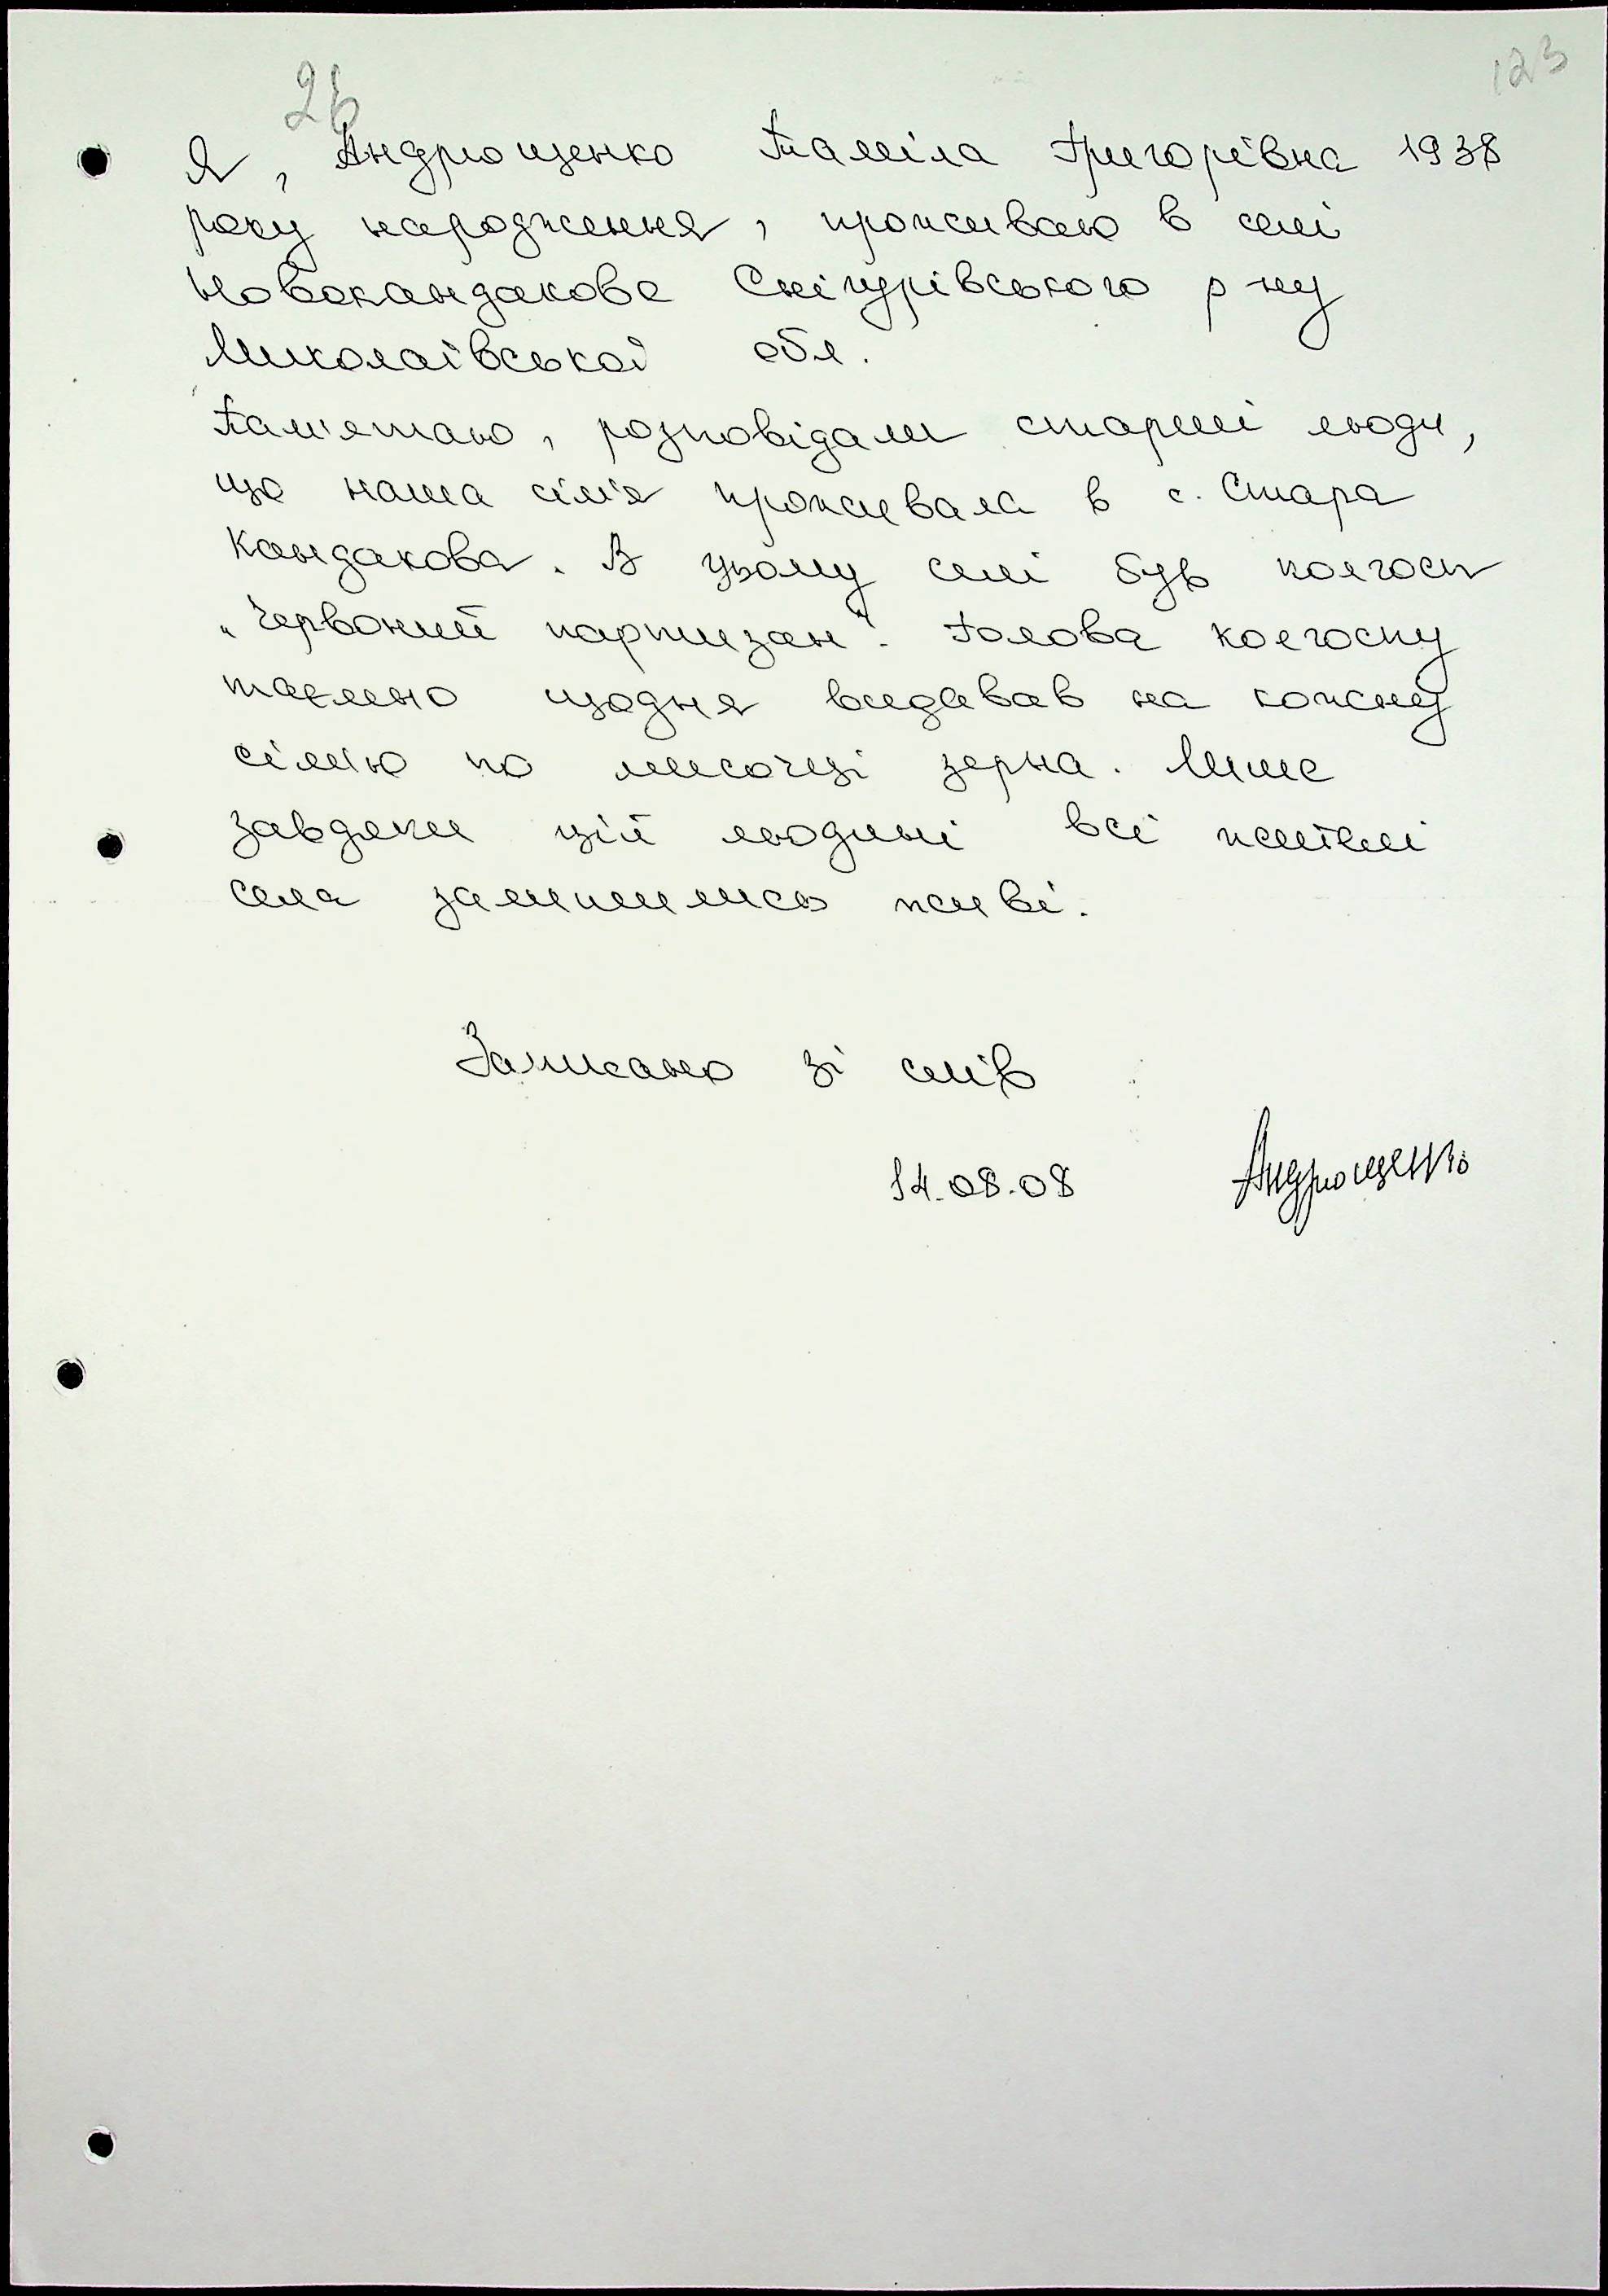 26
123
Я, Андрющенко Таміла Григорівна 1938
року народження, проживаю в селі
Новокандакове Снігурівського р-ну
Миколаївської обл.
Пам'ятаю, розповідали старші люди,
що наша сім'я проживала в с. Стара
Кандакова. В цьому селі був колгосп
„Червоний партизан". Голова колгоспу
таємно щодня видавав на кожну
сім'ю по мисочці зерна. Лише
завдяки цій людині всі жителі
села залишились живі.
Записано зі слів
14.08.08 Андрющенко